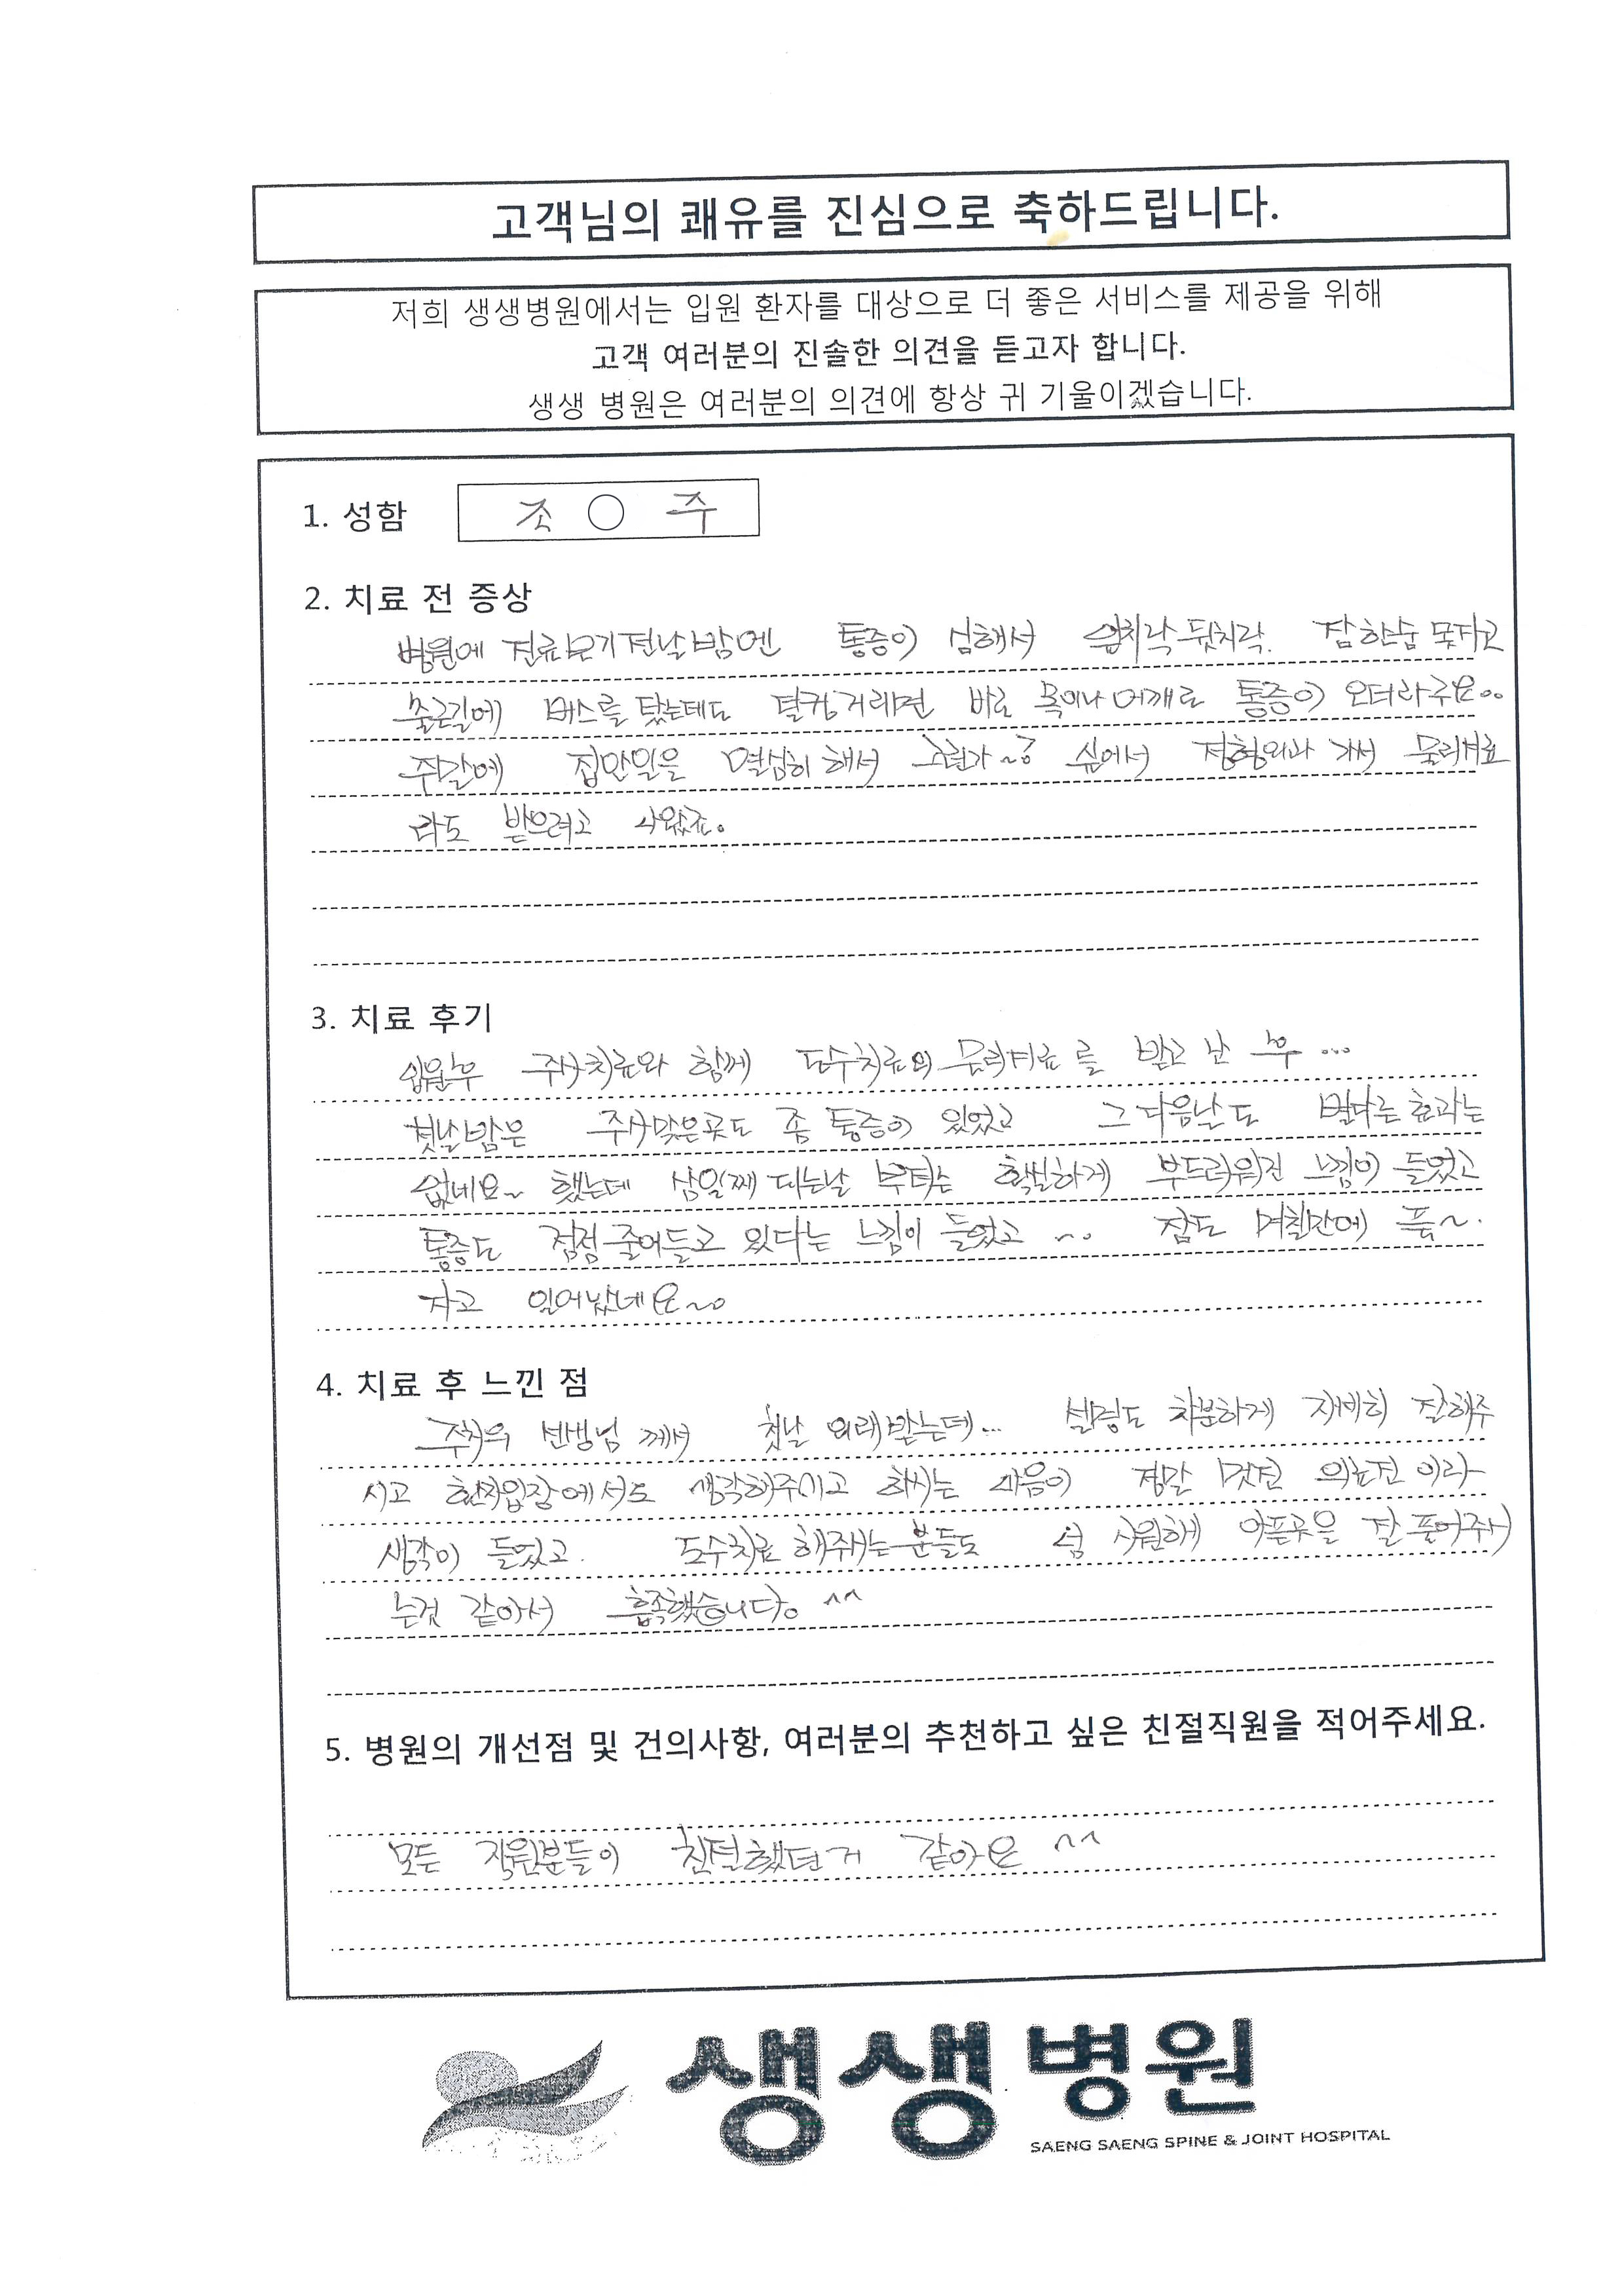 고객님의 쾌유를 진심으로 축하드립니다.
저희 생생병원에서는 입원 환자를 대상으로 더 좋은 서비스를 제공을 위해
고객 여러분의 진솔한 의견을 듣고자 합니다.
생생 병원은 여러분의 의견에 항상 귀 기울이겠습니다.
1. 성함 조 ○ 주
2. 치료 전 증상
병원에 진료오기전날밤엔 통증이 심해서 엎치락뒤치락. 잠한숨못자고
출근길에 버스를 탔는데도 덜컹거리면 바로 목이나 어깨로 통증이 오더라구요..
주말에 집안일을 열심히 해서 그런가~? 싶어서 정형외과 가서 물리치료
라도 받으려고 나왔죠.
3. 치료 후기
입원후 주사치료와 함께 도수치료와 물리치료를 받고 난 후 ...
첫날밤은 주사맞은곳도 좀 통증이 있었고 그다음날도 별다른 효과는
없네요~ 했는데 삼일째 되는날 부터는 확실하게 부드러워진 느낌이 들었고
통증도 점점 줄어들고 있다는 느낌이 들었고 ~.. 잠도 며칠만에 푹~.
자고 일어났네요~.
4. 치료 후 느낀 점
주치의 선생님 께서 첫날 외래받는데... 설명도 차분하게 자세히 잘해주
시고 환자입장에서도 생각해주시고 하시는 마음이 정말 멋진 의느님이라
생각이 들었고. 도수치료 해주시는분들도 넘 시원하게 아픈곳을 잘 풀어주시
는것 같아서 흡족했습니다. ^^
5. 병원의 개선점 및 건의사항, 여러분의 추천하고 싶은 친절직원을 적어주세요.
모든 직원분들이 친절했던거 같아요 ^^
생생병원
SAENG SAENG SPINE & JOINT HOSPITAL